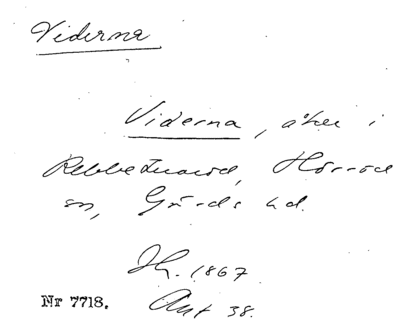 Viderna
Viderna, åker i
Rebbetuaröd, Hörröd
sn, Gärds hd.
Jh. 1867
Nr 7718. Akt 38.